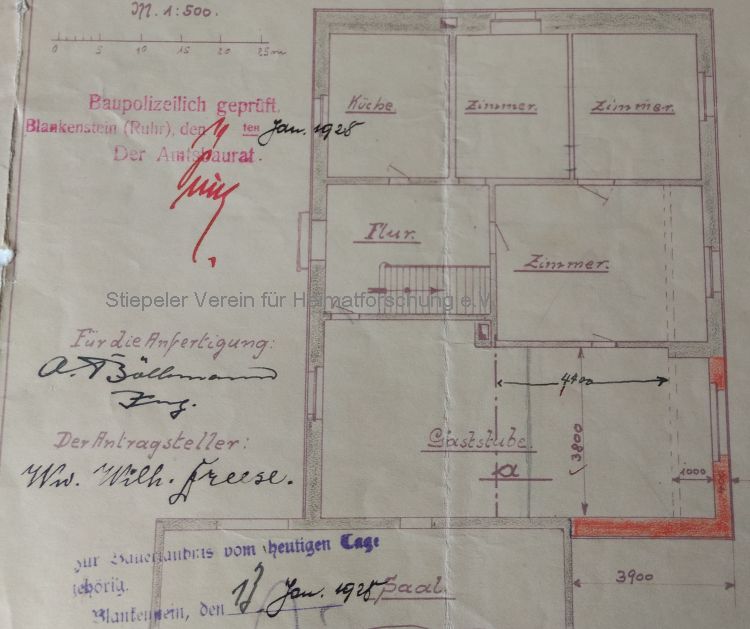 M. 1:500.
0 5 10 15 20 25m
Baupolizeilich geprüft.
Blankenstein (Ruhr), den ten Jan. 1928
Der Amtsbaurat.
Küche.
Zimmer.
Zimmer.
Flur.
Zimmer.
Stiepeler Verein für Heimatforschung e.V.
Für die Anfertigung:
A. Böllmann
Ing.
Der Antragsteller:
Ww. Wilh. Freese.
4400
Gaststube.
a
3800
1000
zur Bauerlaubnis vom heutigen Tage
gehörig.
Blankenstein, den 13 Jan. 1928
Saal.
3900